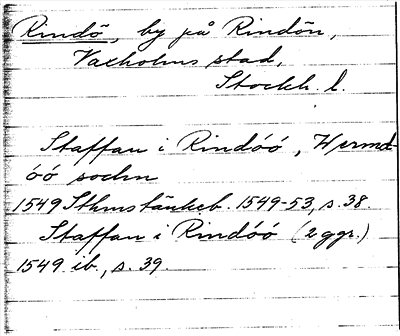 Rindö, by på Rindön,
Vaxholms stad,
Stockh. l.
Staffan i Rindóó, Wermd-
óó sochn
1549 Sthmstänkeb. 1549-53, s. 38.
Staffan i Rindóó (2 ggr.)
1549 ib., s. 39